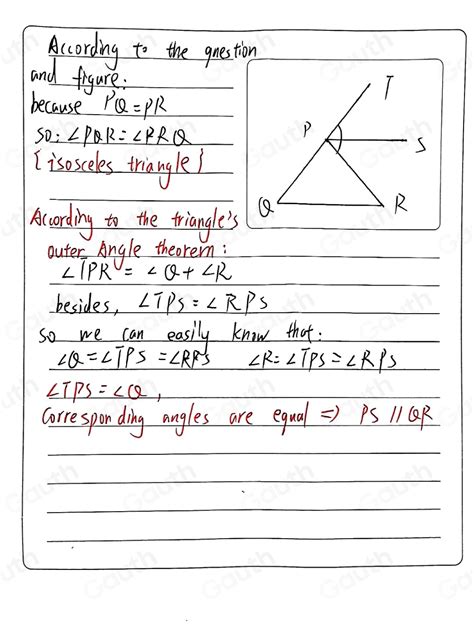 According to the question
and figure:
because PQ=PR
so: ∠PQR=∠PRQ
{isosceles triangle}
T
P
S
Q
R
According to the triangle's
outer Angle theorem:
∠TPR = ∠Q+∠R
besides, ∠TPS=∠RPS
so we can easily know that:
∠Q=∠TPS=∠RPS ∠R=∠TPS=∠RPS
∠TPS=∠Q,
Corresponding angles are equal => PS // QR
Gauth